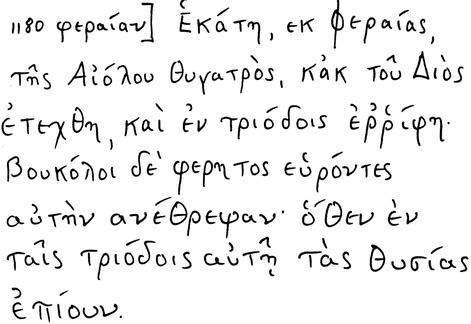 1180 φεραίαν] Ἑκάτη, εκ Φεραίας,
τῆς Αἰόλου θυγατρὸς, κἀκ τοῦ Διὸς
ἐτεχθη, καὶ ἐν τριόδοις ἐῤῥίφη·
βουκόλοι δὲ φερητος εὑρόντες
αὐτὴν ανέθρεψαν· ὅθεν ἐν
ταῖς τριόδοις αὐτῇ τὰς θυσίας
ἐπίουν.